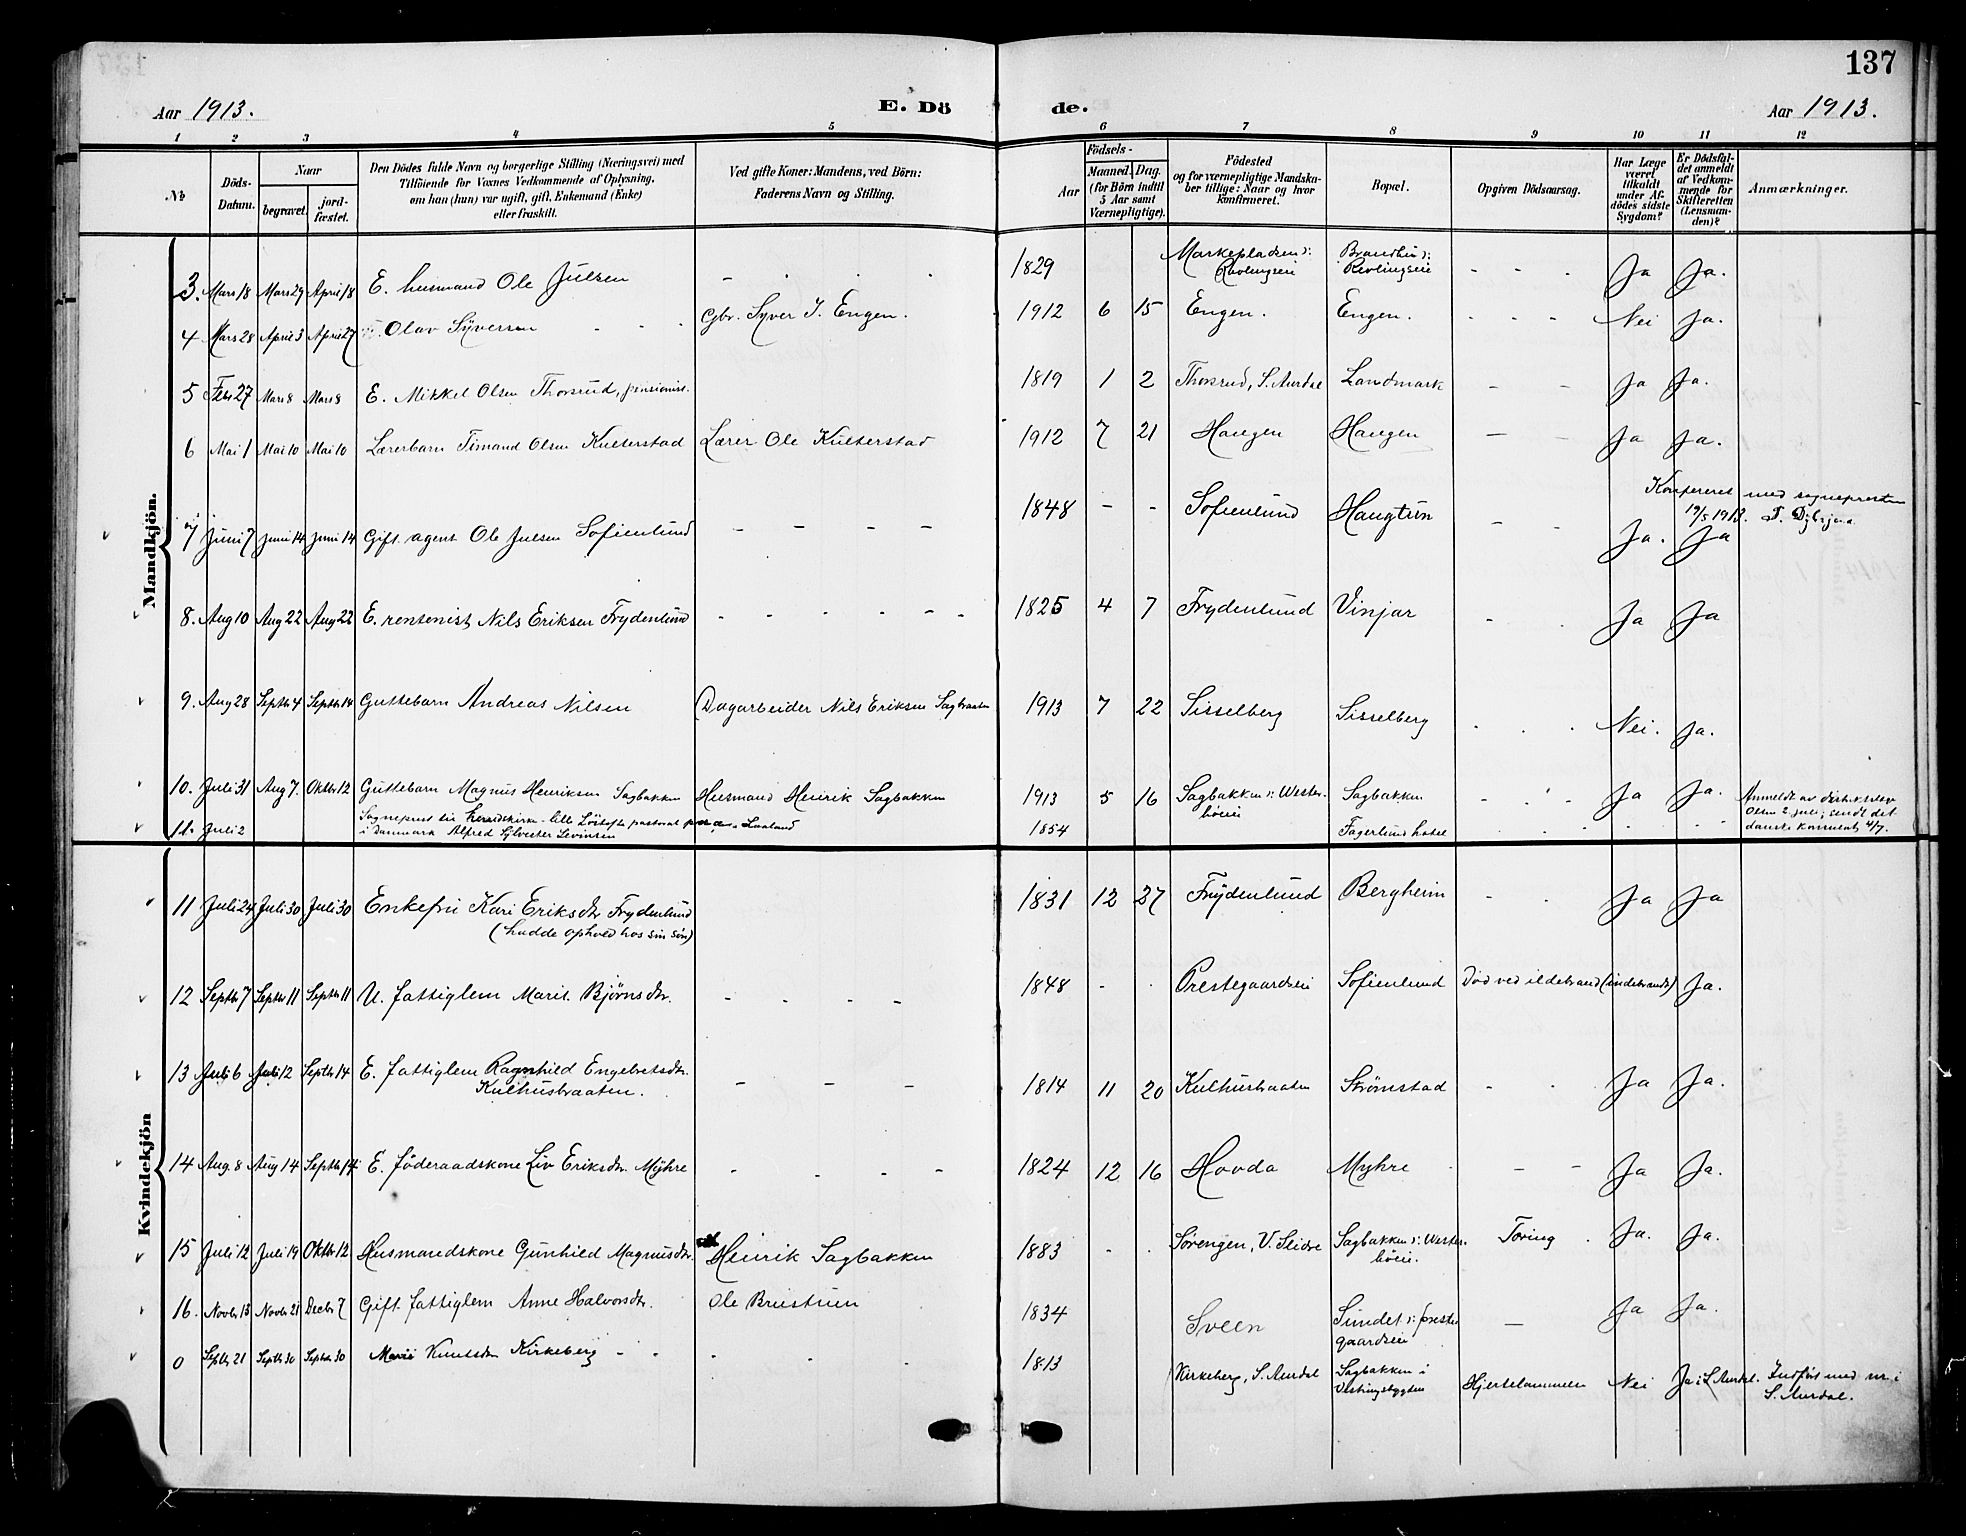 137
Aar 1913.
E. Dö
de.
Aar 1913.
1 2 3 4 5 6 7 8 9 10 11 12
№
Döds-Datum.
Naar
begravet.
jord-fæstet.
Den Dödes fulde Navn og borgerlige Stilling (Næringsvei) med
Tilföiende for Voxnes Vedkommende af Oplysning,
om han (hun) var ugift, gift, Enkemand (Enke)
eller fraskilt.
Ved gifte Koner: Mandens, ved Börn:
Faderens Navn og Stilling.
Födsels-
Aar
Maaned. Dag.
(for Börn indtil
5 Aar samt
Værnepligtige).
Födested
og for værnepligtige Mandska-
ber tillige: Naar og hvor
konfirmeret.
Bopæl.
Opgiven Dödsaarsag.
Har Læge
været
tilkaldt
under Af-
dödes sidste
Sygdom?
Er Dödsfal-
det anmeldt
af Vedkom-
mende for
Skifteretten
(Lensman-
den)?
Anmærkninger.
Mandkjön.
3. Mars 18 Mars 29 April 18 E. husmand Ole Julsen - 1829 Markepladsen i: Revlingseie Brandhus i: Revlingseie - - - Ja Ja.
4 Mars 28 April 3 April 27 Olav Syversen Gbr. Syver I. Engen. 1912 6 15 Engen. Engen. - - - Nei Ja.
5 Febr 27 Mars 8 Mars 8 E. Mikkel Olsen Thorsrud, pensionist. 1819 1 2 Thorsrud, S. Aurdal Landmark - - Ja Ja.
6 Mai 1 Mai 10 Mai 10 Lærerbarn Timand Olsen Kulterstad Lærer Ole Kulterstad 1912 7 21 Haugen Haugen - - Ja Ja.
Konfereret med sognepresten
19/5 1913.
7 Juni 7 Juni 14 Juni 14 Gift agent Ole Julsen Sofienlund - - - - 1848 - - Sofienlund Haugtun - - Ja. Ja
8. Aug 10 Aug 22 Aug 22 E. rentenist Nils Eriksen Frydenlund - - - - - 1825 4 7 Frydenlund Vinjar - - Ja Ja
9. Aug 28 Septbr 4 Septbr 14 Guttebarn Andreas Nilsen Dagarbeider Nils Eriksen Sagbraaten 1913 7 22 Sisselberg Sisselberg - - - Nei. Ja.
10. Juli 31 Aug 7. Oktbr 12 Guttebarn Magnus Henriksen Sagbakken Husmand Henrik Sagbakken 1913 5 16 Sagbakken i: Wester-böeie Sagbakken - - - Ja Ja.
11. Juli 2 Sogneprest til - Lille Löitofte pastorat paa Laaland
i Danmark Alfred Sylvester Levinsen 1854 Fagerlund hotel
Anmeldt av distriktslæge
Olsen 2. juli; sendt det
danske konsulat 4/7.
Kvindekjön
11 Juli 24 Juli 30 Juli 30 Enkefru Kari Eriksdtr Frydenlund
(hadde ophold hos sin søn) 1831 12 27 Frydenlund Bergheim - - Ja Ja
12 Septbr 7 Septbr 11 Septbr 11 U. fattiglem Marit Bjørnsdtr. - - - - 1848 - - Prestegaardseie Sofienlund Död ved ildebrand (indebrændt) Ja.
13 Juli 6 Juli 12 Septbr 14 E. fattiglem Ragnhild Engebretsdtr.
Kulhusbraaten. - - - 1814 11 20 Kulhusbraaten Strømstad - - Ja Ja.
14 Aug. 8 Aug 14 Septbr 14 E. föderaadskone Liv Eriksdtr. Myhre - - - - 1824 12 16 Hovda Myhre - - Ja Ja.
15 Juli 12 Juli 19 Oktbr 12 Husmandskone Gunhild Magnusdtr. Henrik Sagbakken 1883 - - Sørengen, V. Slidre Sagbakken i: Wester-böeie. Tæring Ja. Ja.
16. Novbr 13 Novbr 21 Decbr 7 Gift fattiglem Anne Halvorsdtr. Ole Brustuen 1834 Sveen Sundet i: preste-gaardseie - Ja Ja.
0 Septbr 21 Septbr 30 Septbr 30 Marit Knutsdtr Kirkeberg - - 1813 Kirkeberg, S. Aurdal Sagbakken i
Vestringsbygden Hjertelammelse Nei Ja i S. Aurdal. Indført med nr. i
S. Aurdal.